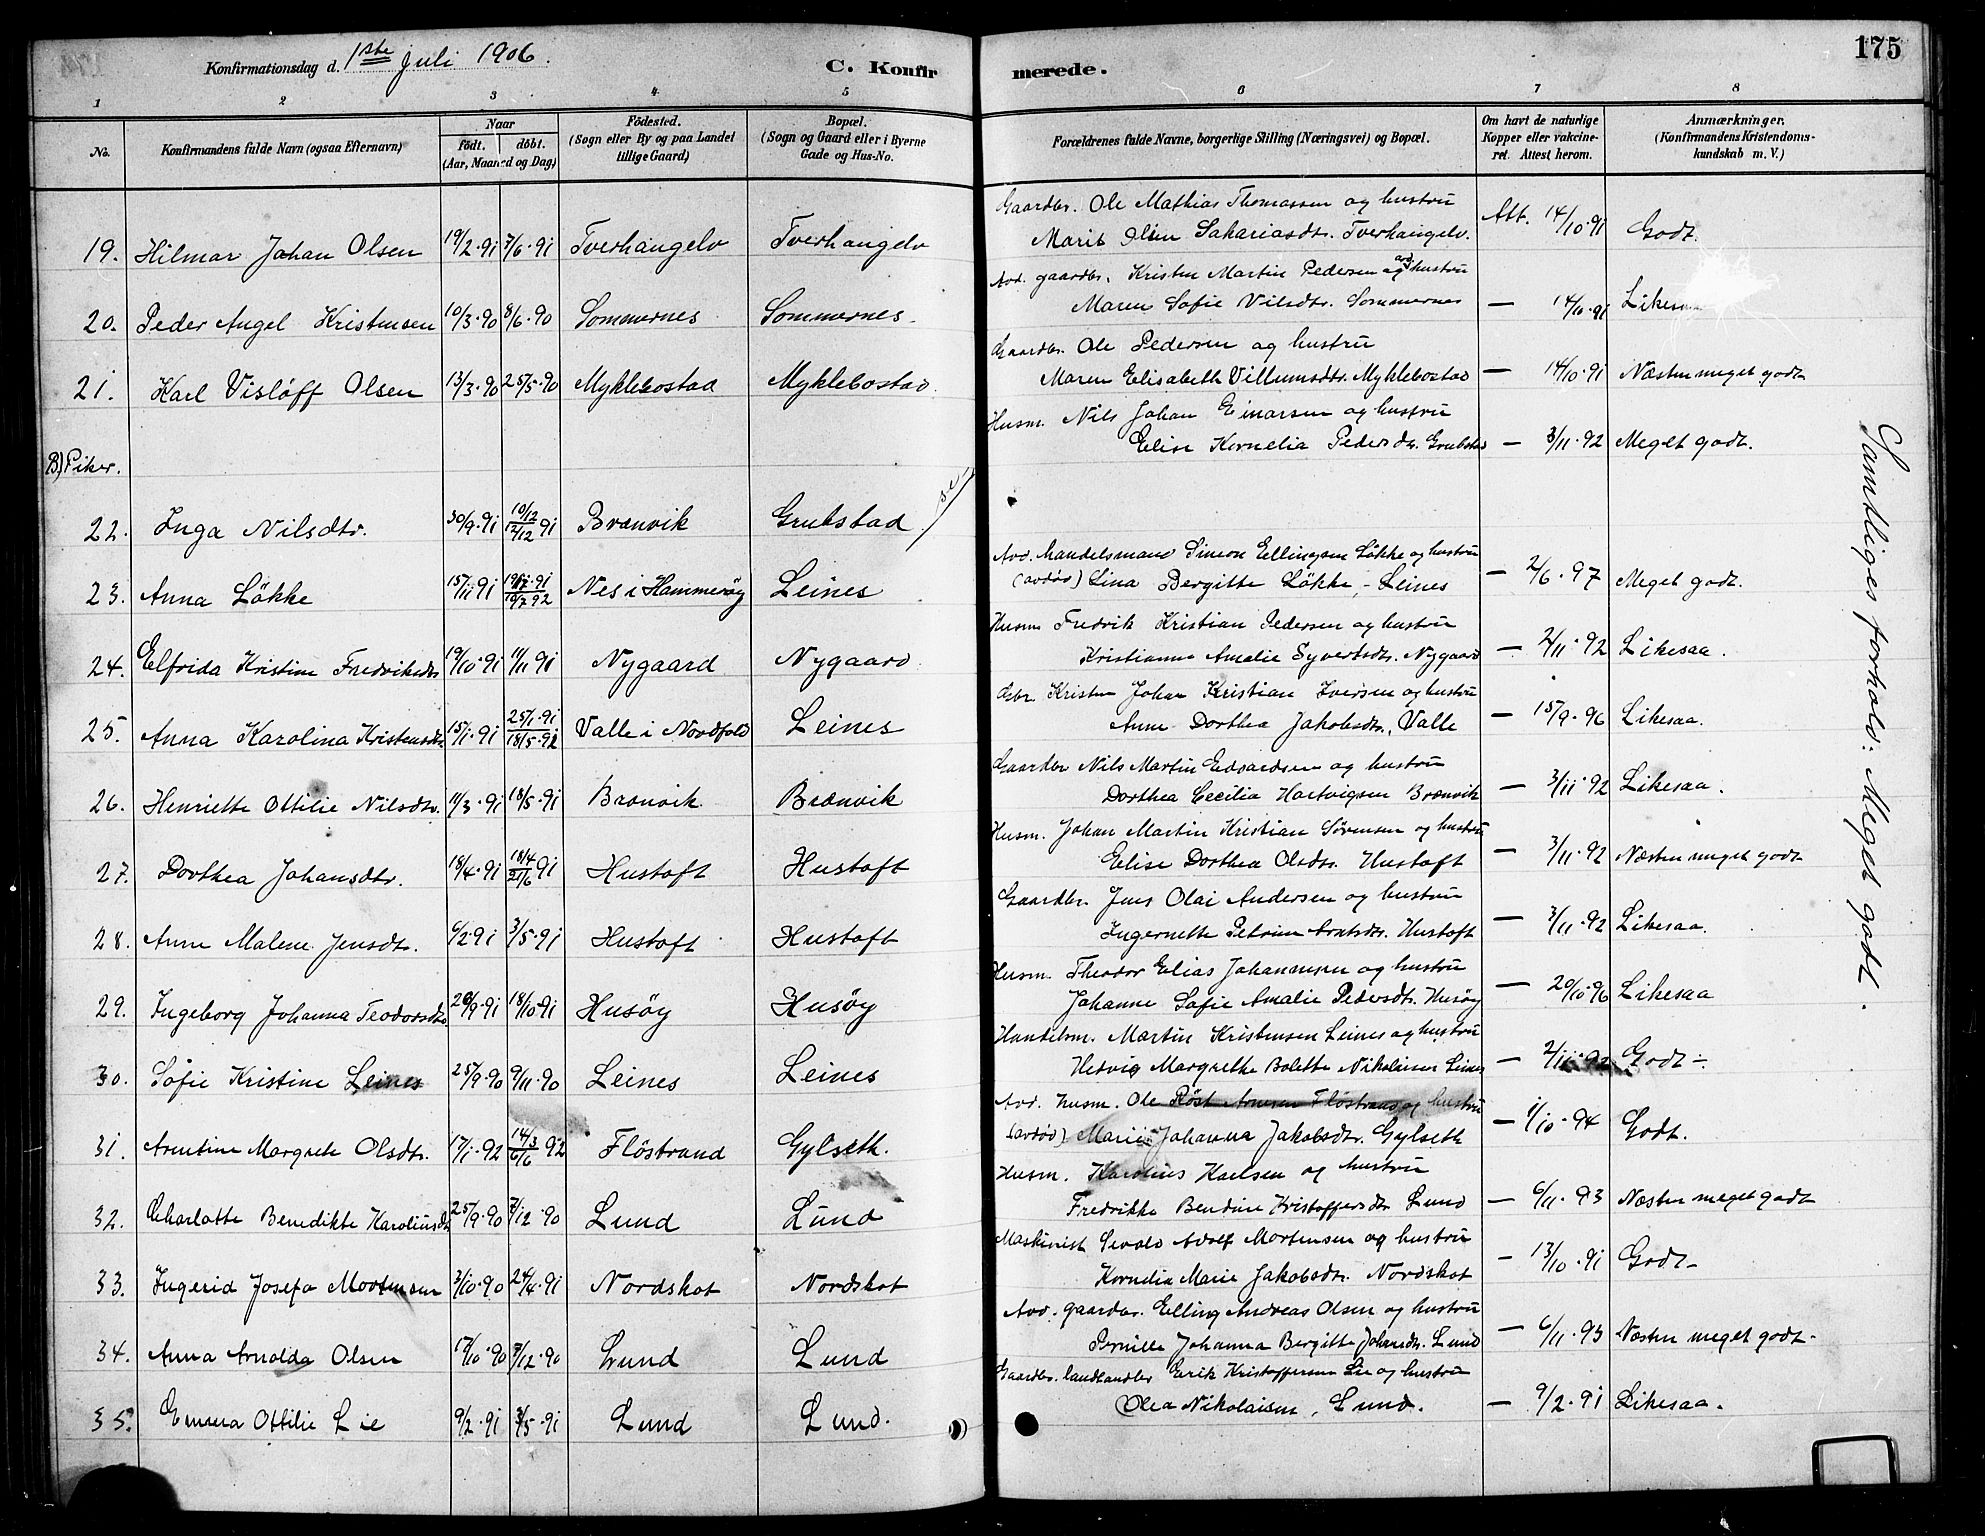 175
Konfirmationsdag d. 1ste Juli 1906.
C. Konfirmerede.
1 2 3 4 5 6 7 8
No.
Konfirmandens fulde Navn (ogsaa Efternavn)
Naar
født. døbt.
(Aar, Maaned og Dag)
Fødested.
(Sogn eller By og paa Landet
tillige Gaard)
Bopæl.
(Sogn og Gaard eller i Byerne
Gade og Hus-No.
Forældrenes fulde Navne, borgerlige Stilling (Næringsvei) og Bopæl.
Om havt de naturlige
Kopper eller vakcine-
ret. Attest herom.
Anmærkninger.
(Konfirmandens Kristendoms-
kundskab m. V.)
Gaardbr. Ole Mathias Thomassen og hustru
19. Hilmar Johan Olsen 19/2.91 7/6.91 Tverhangelv Tverhangelv Marit Olsen Sakariasdtr. Tverhangelv. Att. 14/10.91 Godt.
Avd. gaardbr. Kristen Martin Pedersen og hustru
20. Peder Angel Kristensen 10/3.90 8/6.90 Sommernes Sommernes Maren Sofie Vilsdtr. Sommernes — 14/10.91
Gaardbr. Ole Pedersen og hustru
21. Karl Visløff Olsen 13/3.90 25/5.90 Myklebostad Myklebostad. Maren Elisabeth Villumsdtr. Myklebostad — 14/10.91 Næsten meget godt
Husm. Nils Johan Einarsen og hustru
Elise Kornelia Pedersdtr. Grubstad — 3/11.92 Meget godt.
B) Piker.
22. Inga Nilsdtr. 30/9.91 10/12 12/12 91 Brænvik Grubstad
Avd. Handelsmand Simeon Ellingsen Løkke og hustru
23. Anna Løkke 15/11 91 Nes i Hammerøy Leines (avdød) Lina Bergitte Løkke, Leines — 2/6.97 Meget godt.
Husm Fredrik Kristian Pedersen og hustru
24. Elfrida Kristine Fredriksdtr 19/10.91 Nygaard Nygaard Kristianne Amalie Syvertsdtr. Nygaard — 2/11.92 Likesaa.
Gbr. Kristen Johan Kristian Iversen og hustru
25. Anna Karolina Kristensdtr. 15/1.91 25/1.91 18/5.92 Valle i Nordfold Leines Anne Dorthea Jakobsdtr., Valle — 15/9.96 Likesaa.
Gaardbr Nils Martin Edvardsen og hustru
26. Henriette Ottilie Nilsdtr. 11/3.91 18/5.91 Brænvik Brænvik Dorthea Cecilia Hartvigsen Brænvik — 3/11.92 Likesaa.
Husm. Johan Martin Kristian Sørensen og hustru
27. Dorthea Johansdtr. 18/4.91 18/4 21/6 91 Hustoft Hustoft Elise Dorthea Olsdtr. Hustoft — 3/11.92 Næsten meget godt
Gaardbr. Jens Olai Andersen og hustru
28. Anne Malene Jensdtr. 6/2 91 3/5.91 Hustoft Hustoft Ingernette Petrine Arntsdtr. Hustoft — 3/11.92 Likesaa.
Husm. Theodor Elias Johannesen og hustru
29. Ingeborg Johanna Teodorsdtr 18/10.91 Husøy Husøy Johanne Sofie Amalie Pedersdtr. Husøy — 20/10.96 Likesaa
Handelsm. Martin Kristensen Leines og hustru
30. Sofie Kristine Leines 25/9.90 9/11.90 Leines Leines Hedvig Margrethe Bolette Nikolaisen Leines — 2/11.92 Godt ÷.
Avd. Husm. Ole Røst Arnesen Fløstrand og hustru
31. Arntine Margrete Olsdtr. 17/1.92 14/3 6/6 92 Fløstrand Gylseth. (avdød) Marie Johanna Jakobsdtr. Gylseth — 1/10.94 Godt.
Husm. Karolius Karlsen og hustru
32. Charlotte Benedikte Karoliusdtr 25/9.90 7/12.90 Lund Lund Fredrikke Bendine Kristoffersdtr Lund — 6/11.93 Næsten meget godt
Maskinist Sevald Adolf Mortensen og hustru
33. Ingerid Josefa Mortensen 3/10.90 24/4.91 Nordskot Nordskot Kornelia Marie Jakobsdtr. Nordskot — 13/10.91 Godt —
Avd. gaardbr. Elling Andreas Olsen og hustru
34. Anna Arnolda Olsen 17/10.90 7/12.90 Lund Lund Pernille Johanna Bergitte Johansdtr. Lund — 6/11.93 Næsten meget godt.
Gaardbr. landhandler Erik Kristoffersen Lie og hustru
35. Emma Ottilie Lie 9/2.91 3/5.91 Lund Lund. Olea Nikolaisen, Lund. — 9/2.91 Likesaa.
Samtliges forhold: Meget godt.